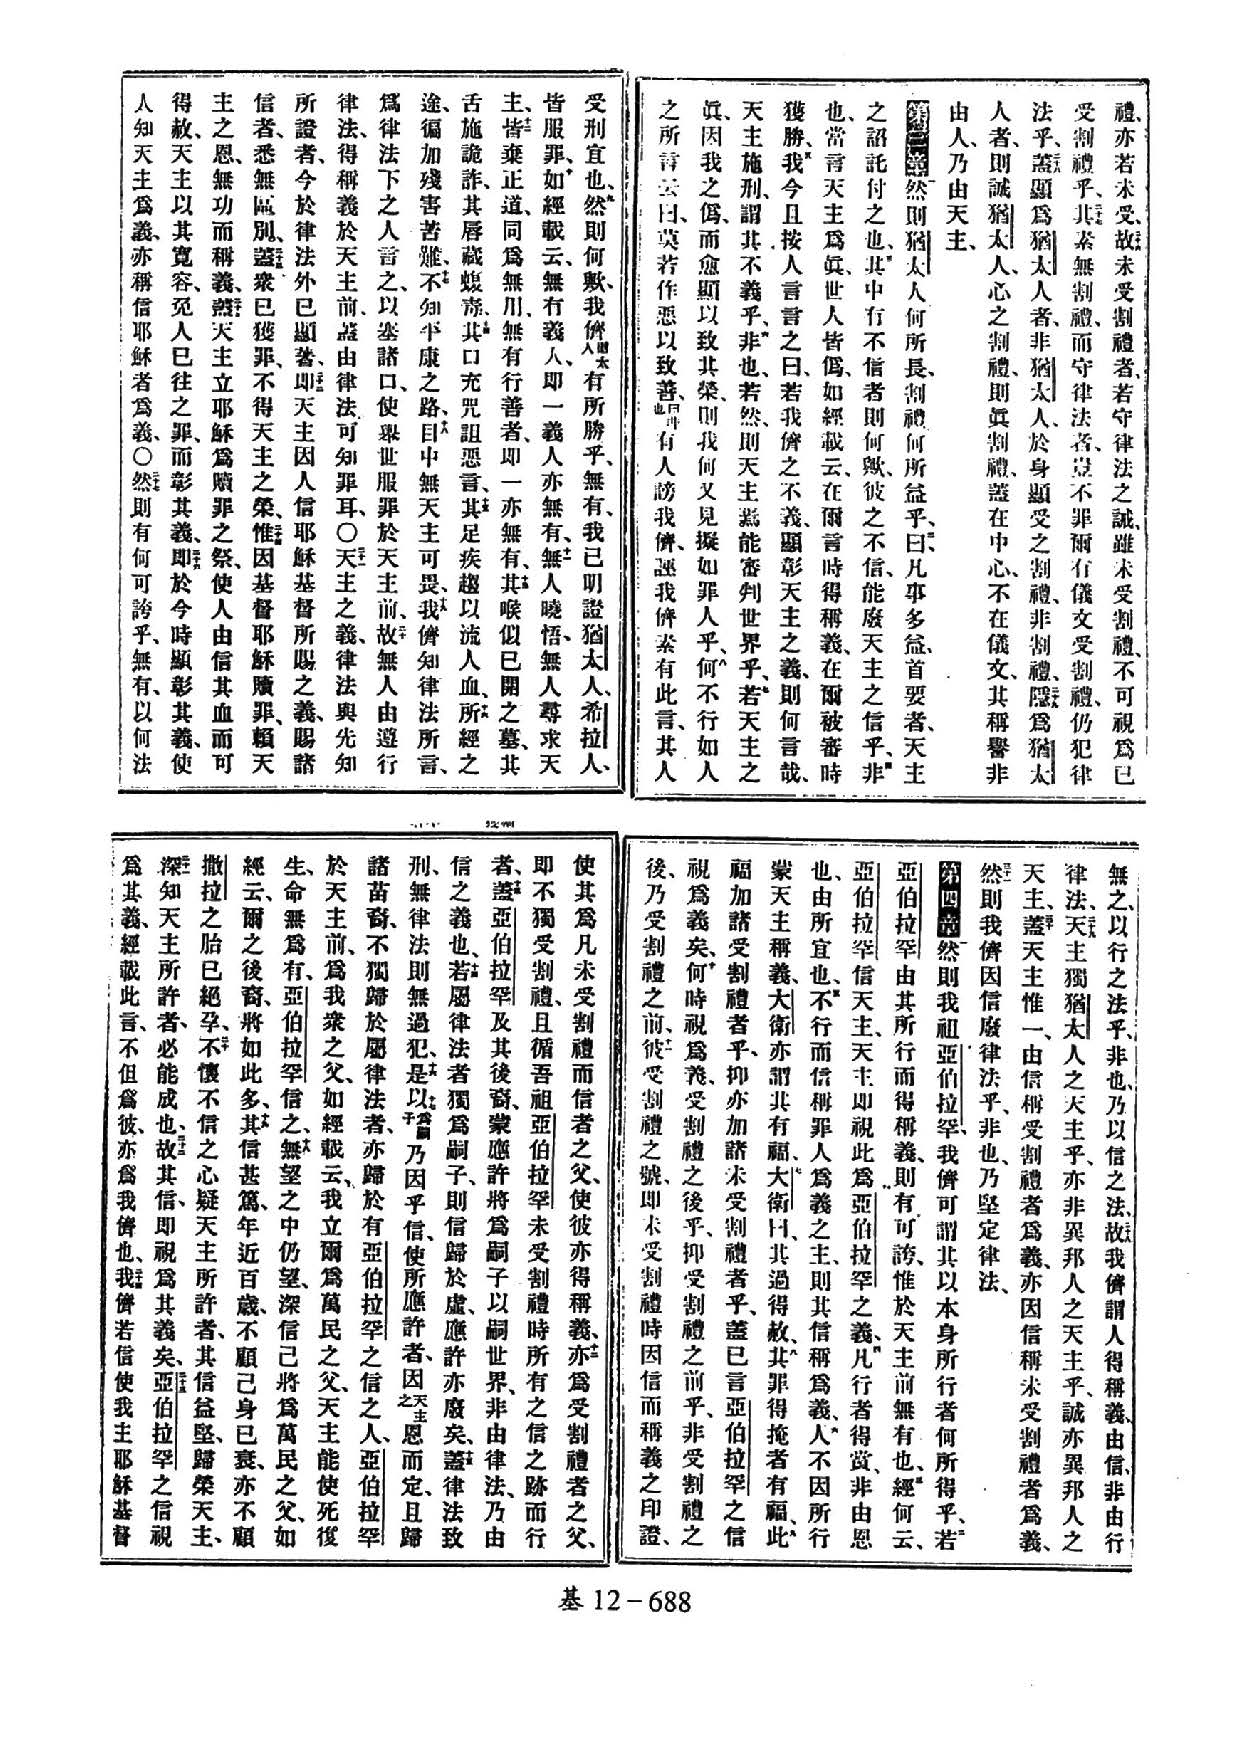 禮、亦若未受、故未受割禮者、若守律法之誡、雖未受割禮、不可視爲已
受割禮乎、其素無割禮、而守律法者、豈不罪爾有儀文受割禮、仍犯律
法乎、蓋顯爲猶太人者、非猶太人、於身顯受之割禮、非割禮、隱爲猶太
人者、則誠猶太人、心之割禮、則眞割禮、蓋在中心、不在儀文、其稱譽非
由人、乃由天主、
第三章 然則猶太人何所長、割禮何所益乎、曰、凡事多益、首要者、天主
之詔託付之也、其中有不信者則何歟、彼之不信、能廢天主之信乎、非
也、當言天主爲眞、世人皆僞、如經載云、在爾言時得稱義、在爾被審時
獲勝、我今且按人言言之曰、若我儕之不義、顯彰天主之義、則何言哉、
天主施刑、謂其不義乎、非也、若然、則天主焉能審判世界乎、若天主之
眞、因我之僞、而愈顯以致其榮、則我何又見擬如罪人乎、何不行如人
之所言云曰、莫若作惡以致善、有人謗我儕、誣我儕素有此言、其人
受刑宜也、然則何歟、我儕猶太人有所勝乎、無有、我已明證猶太人、希拉人、
皆服罪、如經載云、無有義人、即一義人亦無有、無人曉悟、無人尋求天
主、皆棄正道、同爲無用、無有行善者、即一亦無有、其喉似已開之墓、其
舌施詭詐、其唇藏蝮毒、其口充咒詛惡言、其足疾趨以流人血、所經之
途、徧加殘害苦難、不知平康之路、目中無天主可畏、我儕知律法所言、
爲律法下之人言之、以塞諸口、使舉世服罪於天主前、故無人由遵行
律法、得稱義於天主前、蓋由律法可知罪耳、〇天主之義、律法與先知
所證者、今於律法外已顯著、即天主因人信耶穌基督所賜之義、賜諸
信者、悉無區別、蓋衆已獲罪、不得天主之榮、惟因基督耶穌贖罪、賴天
主之恩、無功而稱義、蓋天主立耶穌爲贖罪之祭、使人由信其血而可
得赦、天主以其寬容、免人已往之罪、而彰其義、即於今時顯彰其義、使
人知天主爲義、亦稱信耶穌者爲義、〇然則有何可誇乎、無有、以何法
無之、以行之法乎、非也、乃以信之法、故我儕謂人得稱義、由信、非由行
律法、天主獨猶太人之天主乎、亦非異邦人之天主乎、誠亦異邦人之
天主、蓋天主惟一、由信稱受割禮者爲義、亦因信稱未受割禮者爲義、
然則我儕因信廢律法乎、非也、乃堅定律法、
第四章 然則我祖亞伯拉罕、我儕可謂其以本身所行者何所得乎、若
亞伯拉罕由其所行而得稱義、則有可誇、惟於天主前無有也、經何云、
亞伯拉罕信天主、天主即視此爲亞伯拉罕之義、凡行者得賞、非由恩
也、由所宜也、不行而信稱罪人爲義之主、則其信稱爲義、人不因所行
蒙天主稱義、大衛亦謂其有福、大衛曰、其過得赦、其罪得掩者有福、此
福加諸受割禮者乎、抑亦加諸未受割禮者乎、蓋已言亞伯拉罕之信
視爲義矣、何時視爲義、受割禮之後乎、抑受割禮之前乎、非受割禮之
後、乃受割禮之前、彼受割禮之號、即未受割禮時因信而稱義之印證、
使其爲凡未受割禮而信者之父、使彼亦得稱義、亦爲受割禮者之父、
即不獨受割禮、且循吾祖亞伯拉罕未受割禮時所有之信之跡而行
者、蓋亞伯拉罕及其後裔、蒙應許將爲嗣子以嗣世界、非由律法、乃由
信之義也、若屬律法者獨爲嗣子、則信歸於虛、應許亦廢矣、蓋律法致
刑、無律法則無過犯、是以爲嗣子乃因乎信、使所應許者、因天主之恩而定、且歸
諸苗裔、不獨歸於屬律法者、亦歸於有亞伯拉罕之信之人、亞伯拉罕
於天主前、爲我衆之父、如經載云、我立爾爲萬民之父、天主能使死復
生、命無爲有、亞伯拉罕信之、無望之中仍望、深信己將爲萬民之父、如
經云、爾之後裔、將如此多、其信甚篤、年近百歲、不顧己身已衰、亦不顧
撒拉之胎已絕孕、不懷不信之心疑天主所許者、其信益堅、歸榮天主、
深知天主所許者、必能成也、故其信、即視爲其義矣、亞伯拉罕之信視
爲其義、經載此言、不但爲彼、亦爲我儕也、我儕若信使我主耶穌基督
基 12－688